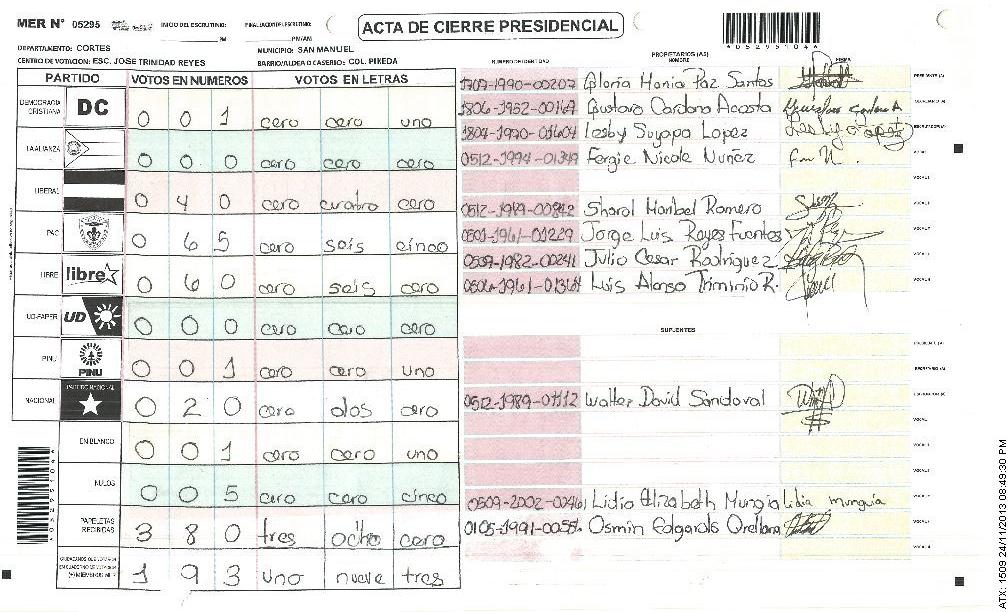 MER Nº 05295 INICIO DEL ESCRUTINIO: PM FINALIZACION DEL ESCRUTINIO: PM/AM
ACTA DE CIERRE PRESIDENCIAL
DEPARTAMENTO: CORTES MUNICIPIO: SAN MANUEL
CENTRO DE VOTACION: ESC. JOSE TRINIDAD REYES BARRIO/ALDEA O CASERIO: COL. PIKEDA
PARTIDO VOTOS EN NUMEROS VOTOS EN LETRAS
DEMOCRACIA CRISTIANA DC 0 0 1 cero cero uno
LA ALIANZA 0 0 0 cero cero cero
LIBERAL 0 4 0 cero cuatro cero
PAC 0 6 5 cero seis cinco
LIBRE libre 0 6 0 cero seis cero
UD-FAPER UD 0 0 0 cero cero cero
PINU PINU 0 0 1 cero cero uno
NACIONAL PARTIDO NACIONAL 0 2 0 cero dos cero
EN BLANCO 0 0 1 cero cero uno
NULOS 0 0 5 cero cero cinco
PAPELETAS RECIBIDAS 3 8 0 tres ocho cero
1 9 3 uno nueve tres
PROPIETARIOS (AS)
NUMERO DE IDENTIDAD NOMBRE FIRMA
1707-1990-00207 Gloria Maria Paz Santos
1806-1952-00169 Gustavo Cardona Acosta
1804-1990-01604 Lesby Suyapa Lopez
0512-1994-01349 Fergie Nicole Nuñez
0512-1989-00842 Sharol Maribel Romero
0501-1961-01229 Jorge Luis Reyes Fuentes
0509-1982-00241 Julio Cesar Rodriguez
Luis Alonso Triminio R.
SUPLENTES
0512-1989-01112 Walter David Sandoval
Lidia Elizabeth Mungia Lidia munguia
0105-1991-0055 Osmin Edgardo Orellana
ATX: 1509 24/11/2013 08:49:30 PM